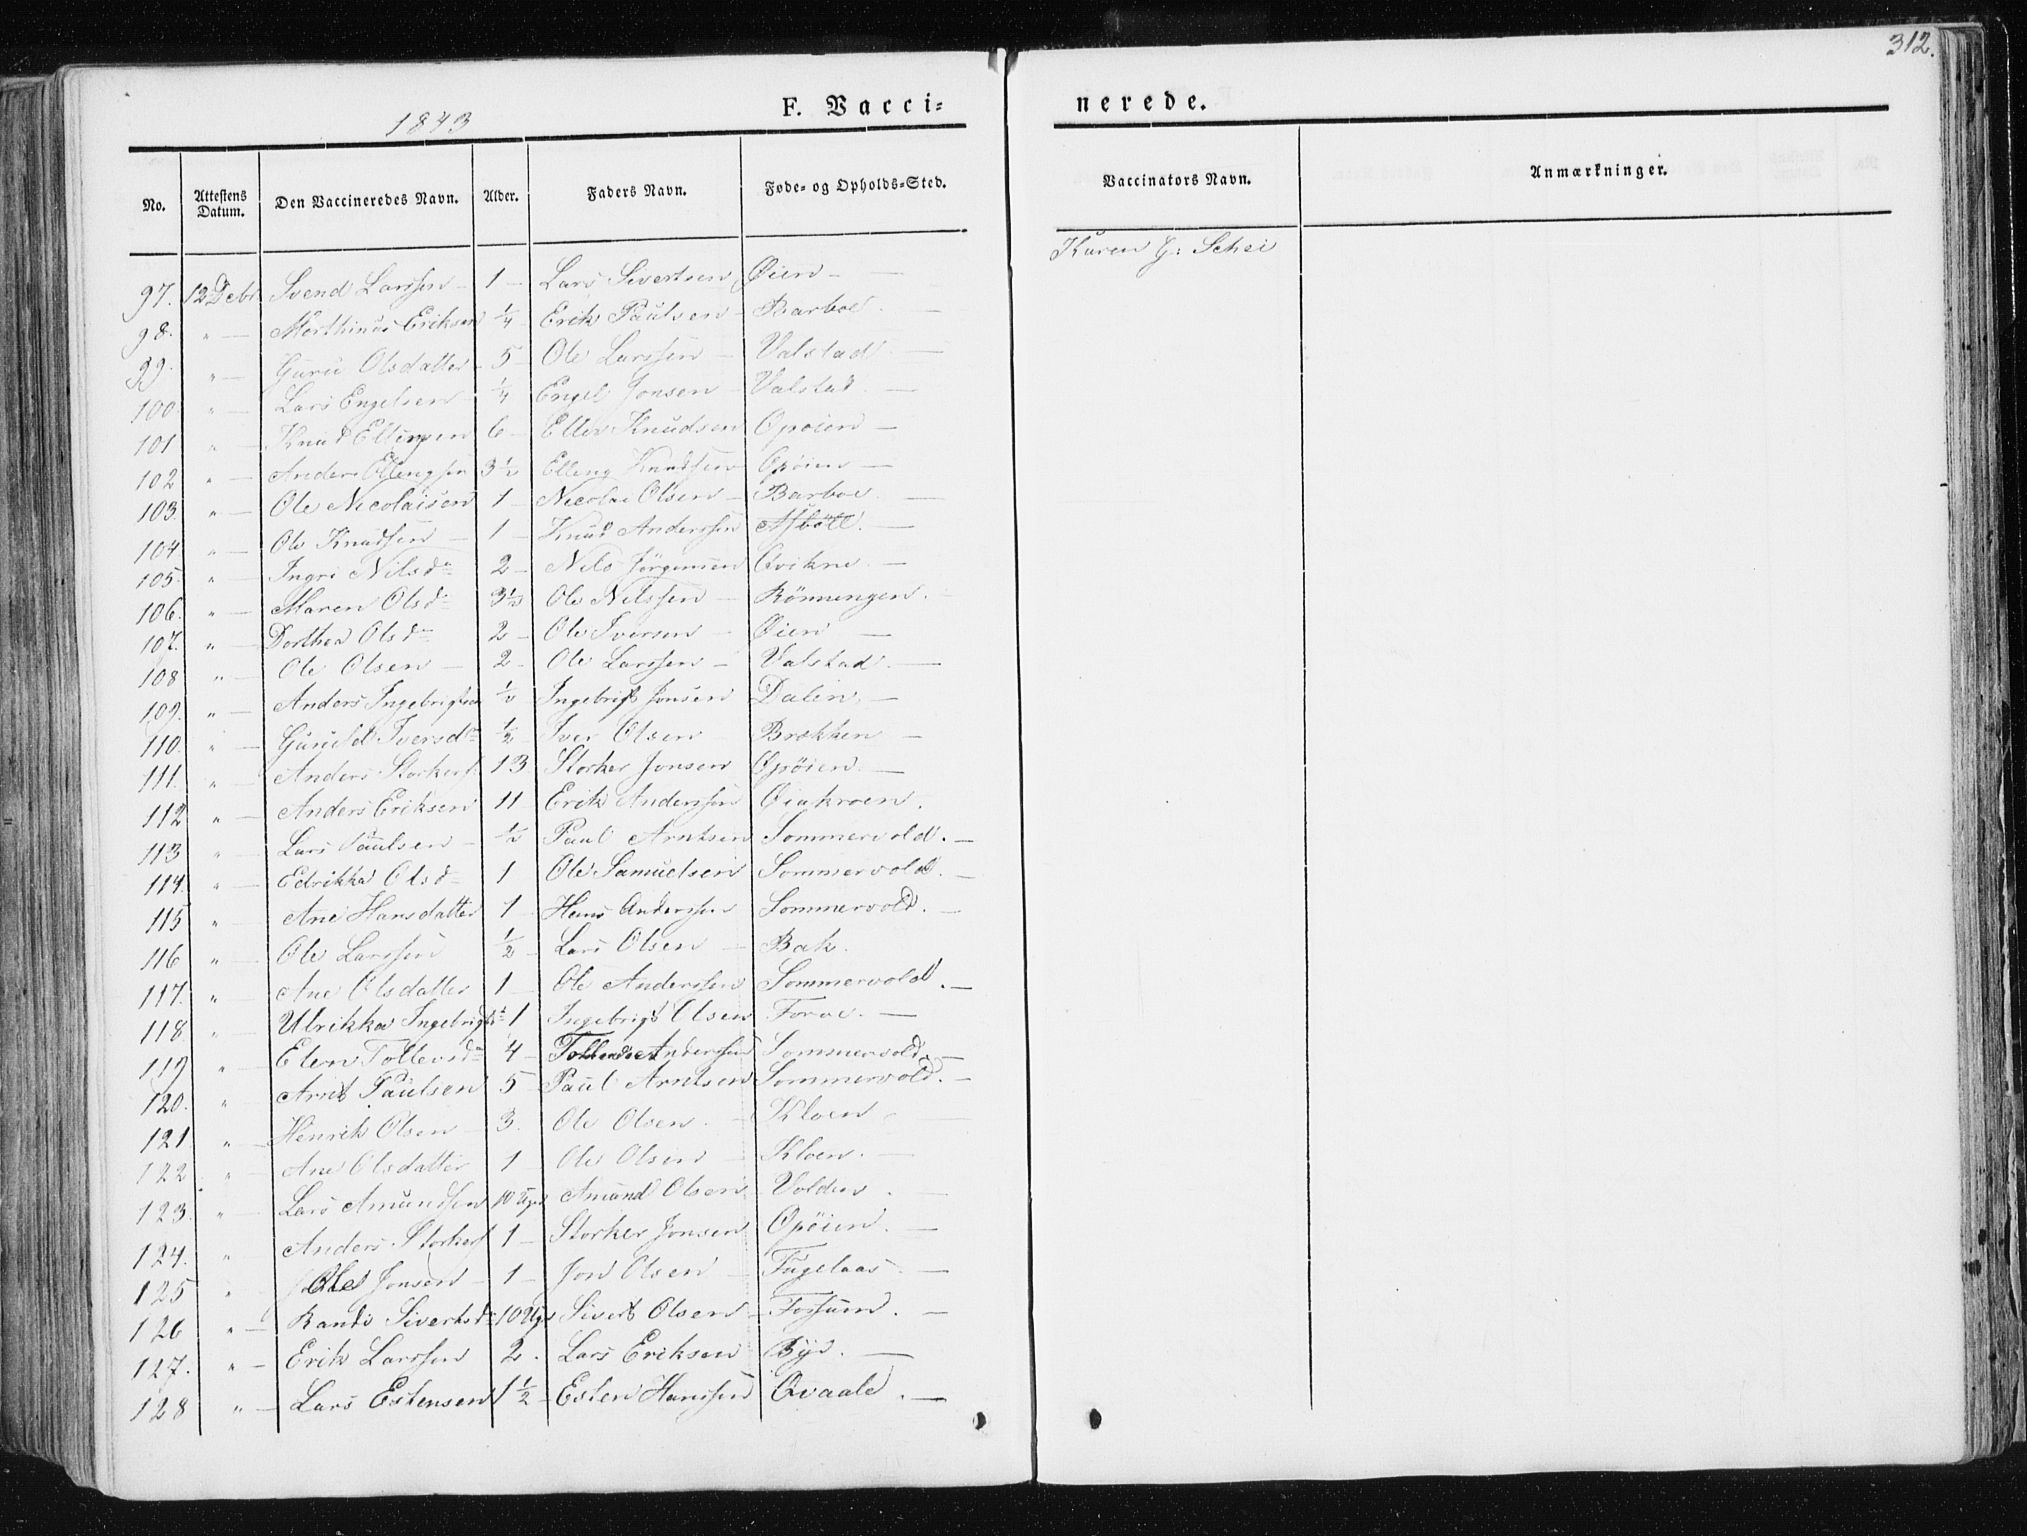 312.
1843
F. Vacci=
nerede.
No. Attestens Datum. Den Vaccineredes Navn. Alder. Faders Navn. Føde- og Opholds-Sted. Vaccinators Navn. Anmærkninger.
97. 12 Debr Svend Larssen - 1 - Lars Sivertsen Øien - Karen G: Schei
98. " - Morthinus Eriksen 1/4 - Erik Paulsen - Barboe -
99. " - Guru Olsdatter - 5 Ole Larssen - Valstad -
100 " - Lars Engelsen - 1/4 Engel Jonsen - Valstad -
101 " - Knud Ellingsen 6 - Knudsen Opøien -
102 " - Anders Ellengsen 3 1/2 Elleng Knudsen Opøien -
103. " - Ole Nicolaisen 1 - Nicolai Olsen - Barboe -
104 " - Ole Knudsen - 1 - Knud Anderssen -
105. " - Ingri Nilsdr 2 - Nils Jörgensen Qvikne -
106. " - Maren Olsdr 3 1/2 Ole Nilssen - Rönningen.
107. " - Dorthea Olsdr 2 - Ole Iversen - Øien -
108 " - Ole Olsen - 2 - Ole Larssen - Valstad. -
109. " - Anders Ingebrigtsen 1/2 Ingebrigt Jonsen Dalen. -
110. " - Gunild Iversdr 1/2 Iver Olsen - Brækken -
111. " - Anders Storkers. 13 Storker Jonsen Opøien. -
112 " - Anders Eriksen 11 Erik Anderssen Øiakroen.
113 " - Lars Paulsen - 1/2 Paul Arntsen Sommervold. -
114. " - Edrikka Olsd 1 Ole Samuelsen Sommervold. -
115 " - Ane Hansdatter 1 Hans Anderssen Sommervold. -
116 " - Ole Larssen 1/2 - Lars Olsen - Bak.
117. " - Ane Olsdatter 1 - Ole Anderssen Sommervold. -
118. " - Ulrikka Ingebrigtsd 1 Ingebrigt Olsen Forve. -
119 " - Elen Tollevsdr 4 - Anderssen Sommervold. -
120. " - Arnt Paulsen 5 Paul Arntsen Sommervold. -
121 " - Henrik Olsen 3. Ole Olsen. - Kloen -
122 " - Ane Olsdatter 1 - Ole Olsen - Kloen. -
123. " - Lars Amundsen 10 Uger Amund Olsen Volden. -
124. " Anders Storkers 1 - Storker Jonsen Opøien. -
125 " Ole Jonsen - 1 - Jon Olsen - Fugelaas. -
126 " - Randi Sivertsdr 10 Ugr Sivert Olsen - Forsum. -
127. " - Erik Larssen 2. Lars Eriksen Bye. -
128 " - Lars Estensen 1 1/2 - Esten Hanssen Qvaale. -